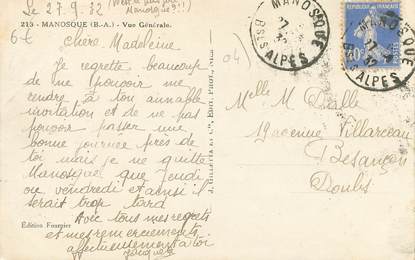 Le 27.9.32
215 - MANOSQUE (B.-A.) - Vue Générale.
6€
Chère Madeleine
Je regrette beaucoup
de ne pouvoir me
rendre à ton aimable
invitation et de ne pas
pouvoir passer une
bonne journée près de
toi mais je ne quitte
Manosque que jeudi
ou vendredi et ainsi il
serait trop tard
Avec tous mes regrets
et mes remerciements
affectueusement à toi
Jacques
Édition Fournier
MANOSQUE
BSES ALPES
MANOSQUE
BSES ALPES
04)
Melle M Dalle
Villarceau
Besançon
Doubs